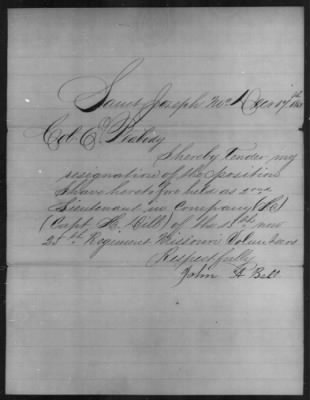 Saint Joseph Mo Dec 17th 1861
Col E. Peabody
I hereby tender my
resignation of the position
I have heretofore held as 2nd
Lieutenant in Company (K)
(Capt Hill) of the 13th now
25th Regiment Missouri Volunteers
Respectfully
John A Bell